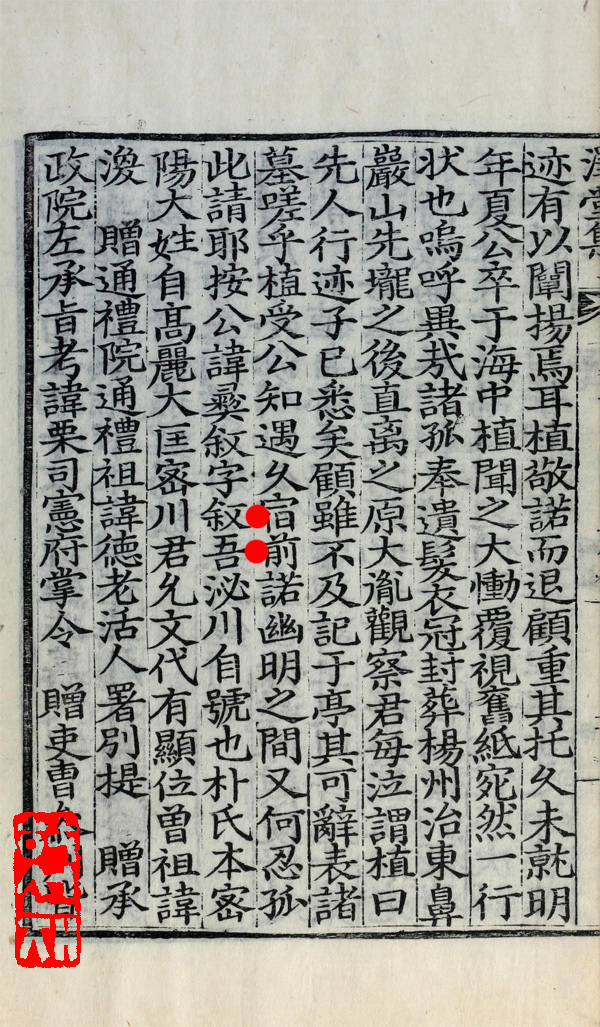 迹有以闡揚焉耳植敬諾而退顧重其托久未就明
年夏公卒于海中植聞之大慟覆視舊紙宛然一行
状也嗚呼異哉諸孤奉遺髮衣冠封葬楊州治東鼻
巖山先壠之後直离之原大胤觀察君每泣謂植曰
先人行迹子已悉矣顧雖不及記于亭其可辭表諸
墓嗟乎植受公知遇久宿前諾幽明之間又何忍孤
此請耶按公諱彛叙字叙吾泌川自號也朴氏本密
陽大姓自高麗大匡密川君允文代有顯位曾祖諱
贈通禮院通禮祖諱德老活人署別提 贈承
政院左承旨考諱栗司憲府掌令 贈吏曹